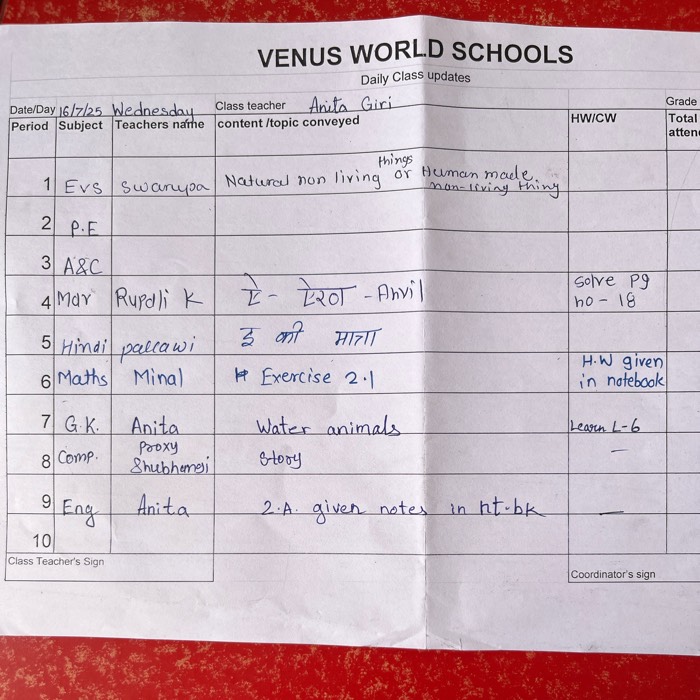 VENUS WORLD SCHOOLS
Daily Class updates
Date/Day 16/7/25 Wednesday Class teacher Anita Giri Grade
Period Subject Teachers name content /topic conveyed HW/CW Total
atten
things
1 EVS Swarupa Natural non living or Human made
non-living thing
2 P.E
3 A&C
4 Mar Rupali K ऐ - ऐरण - Anvil Solve Pg
no - 18
5 Hindi pallawi इ की मात्रा
6 Maths Minal Exercise 2.1 H.W given
in notebook
7 G.K. Anita Water animals Learn L-6
8 Comp. Proxy
Story -
9 Eng Anita 2.A. given notes in nt-bk -
10
Class Teacher's Sign
Coordinator's sign